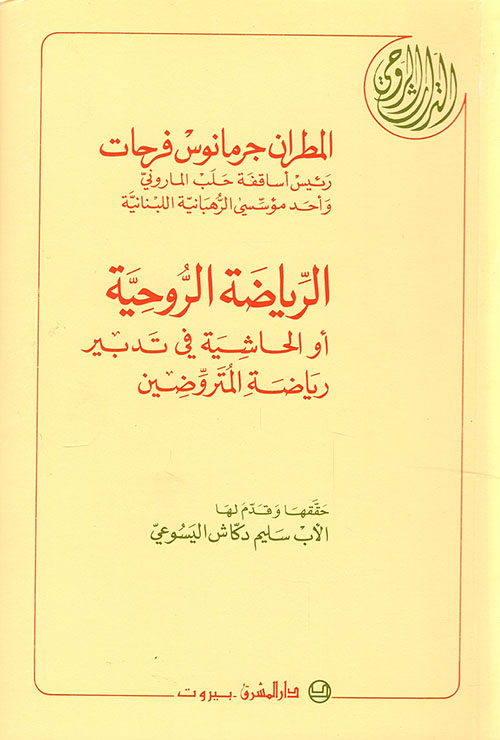 التراث الروحي
المطران جرمانوس فرحات
رَئيس أساقفة حَلَب المارونيّ
وَأحَد مؤسِّسي الرُّهبَانيّة اللبنَانيَّة
الرِّياضَة الرُّوحِيَّة
أو الحاشِيَة في تَدبير
ريَاضَةِ المُتَروِّضِين
حَقَّقهَا وَقَدّمَ لهَا
الأبْ سَليم دكّاش اليَسُوعيّ
دار المشرق - بيروت